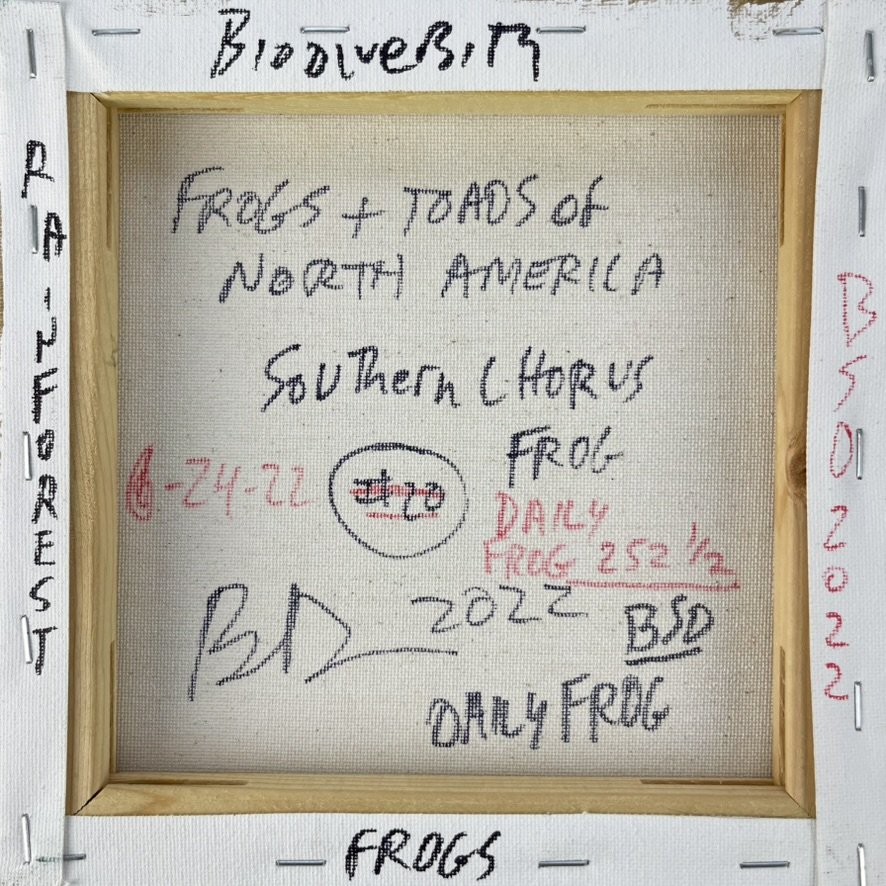 BiodiveRsity
RAINFOREST
FROGS + TOADS OF
NORTH AMERICA
SOUThern CHORUS
FROG
6-24-22
#20
DAILY
FROG 252 1/2
BD 2022
BSD
DAILY FROG
BSD 2022
FROGS